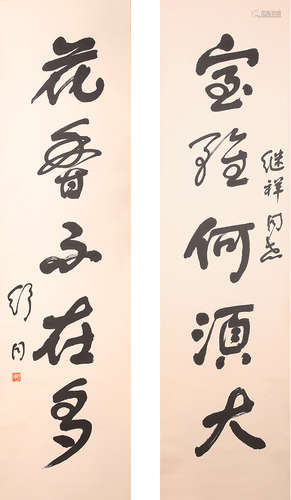 室雅何须大
继祥同志
花香不在多
舒同